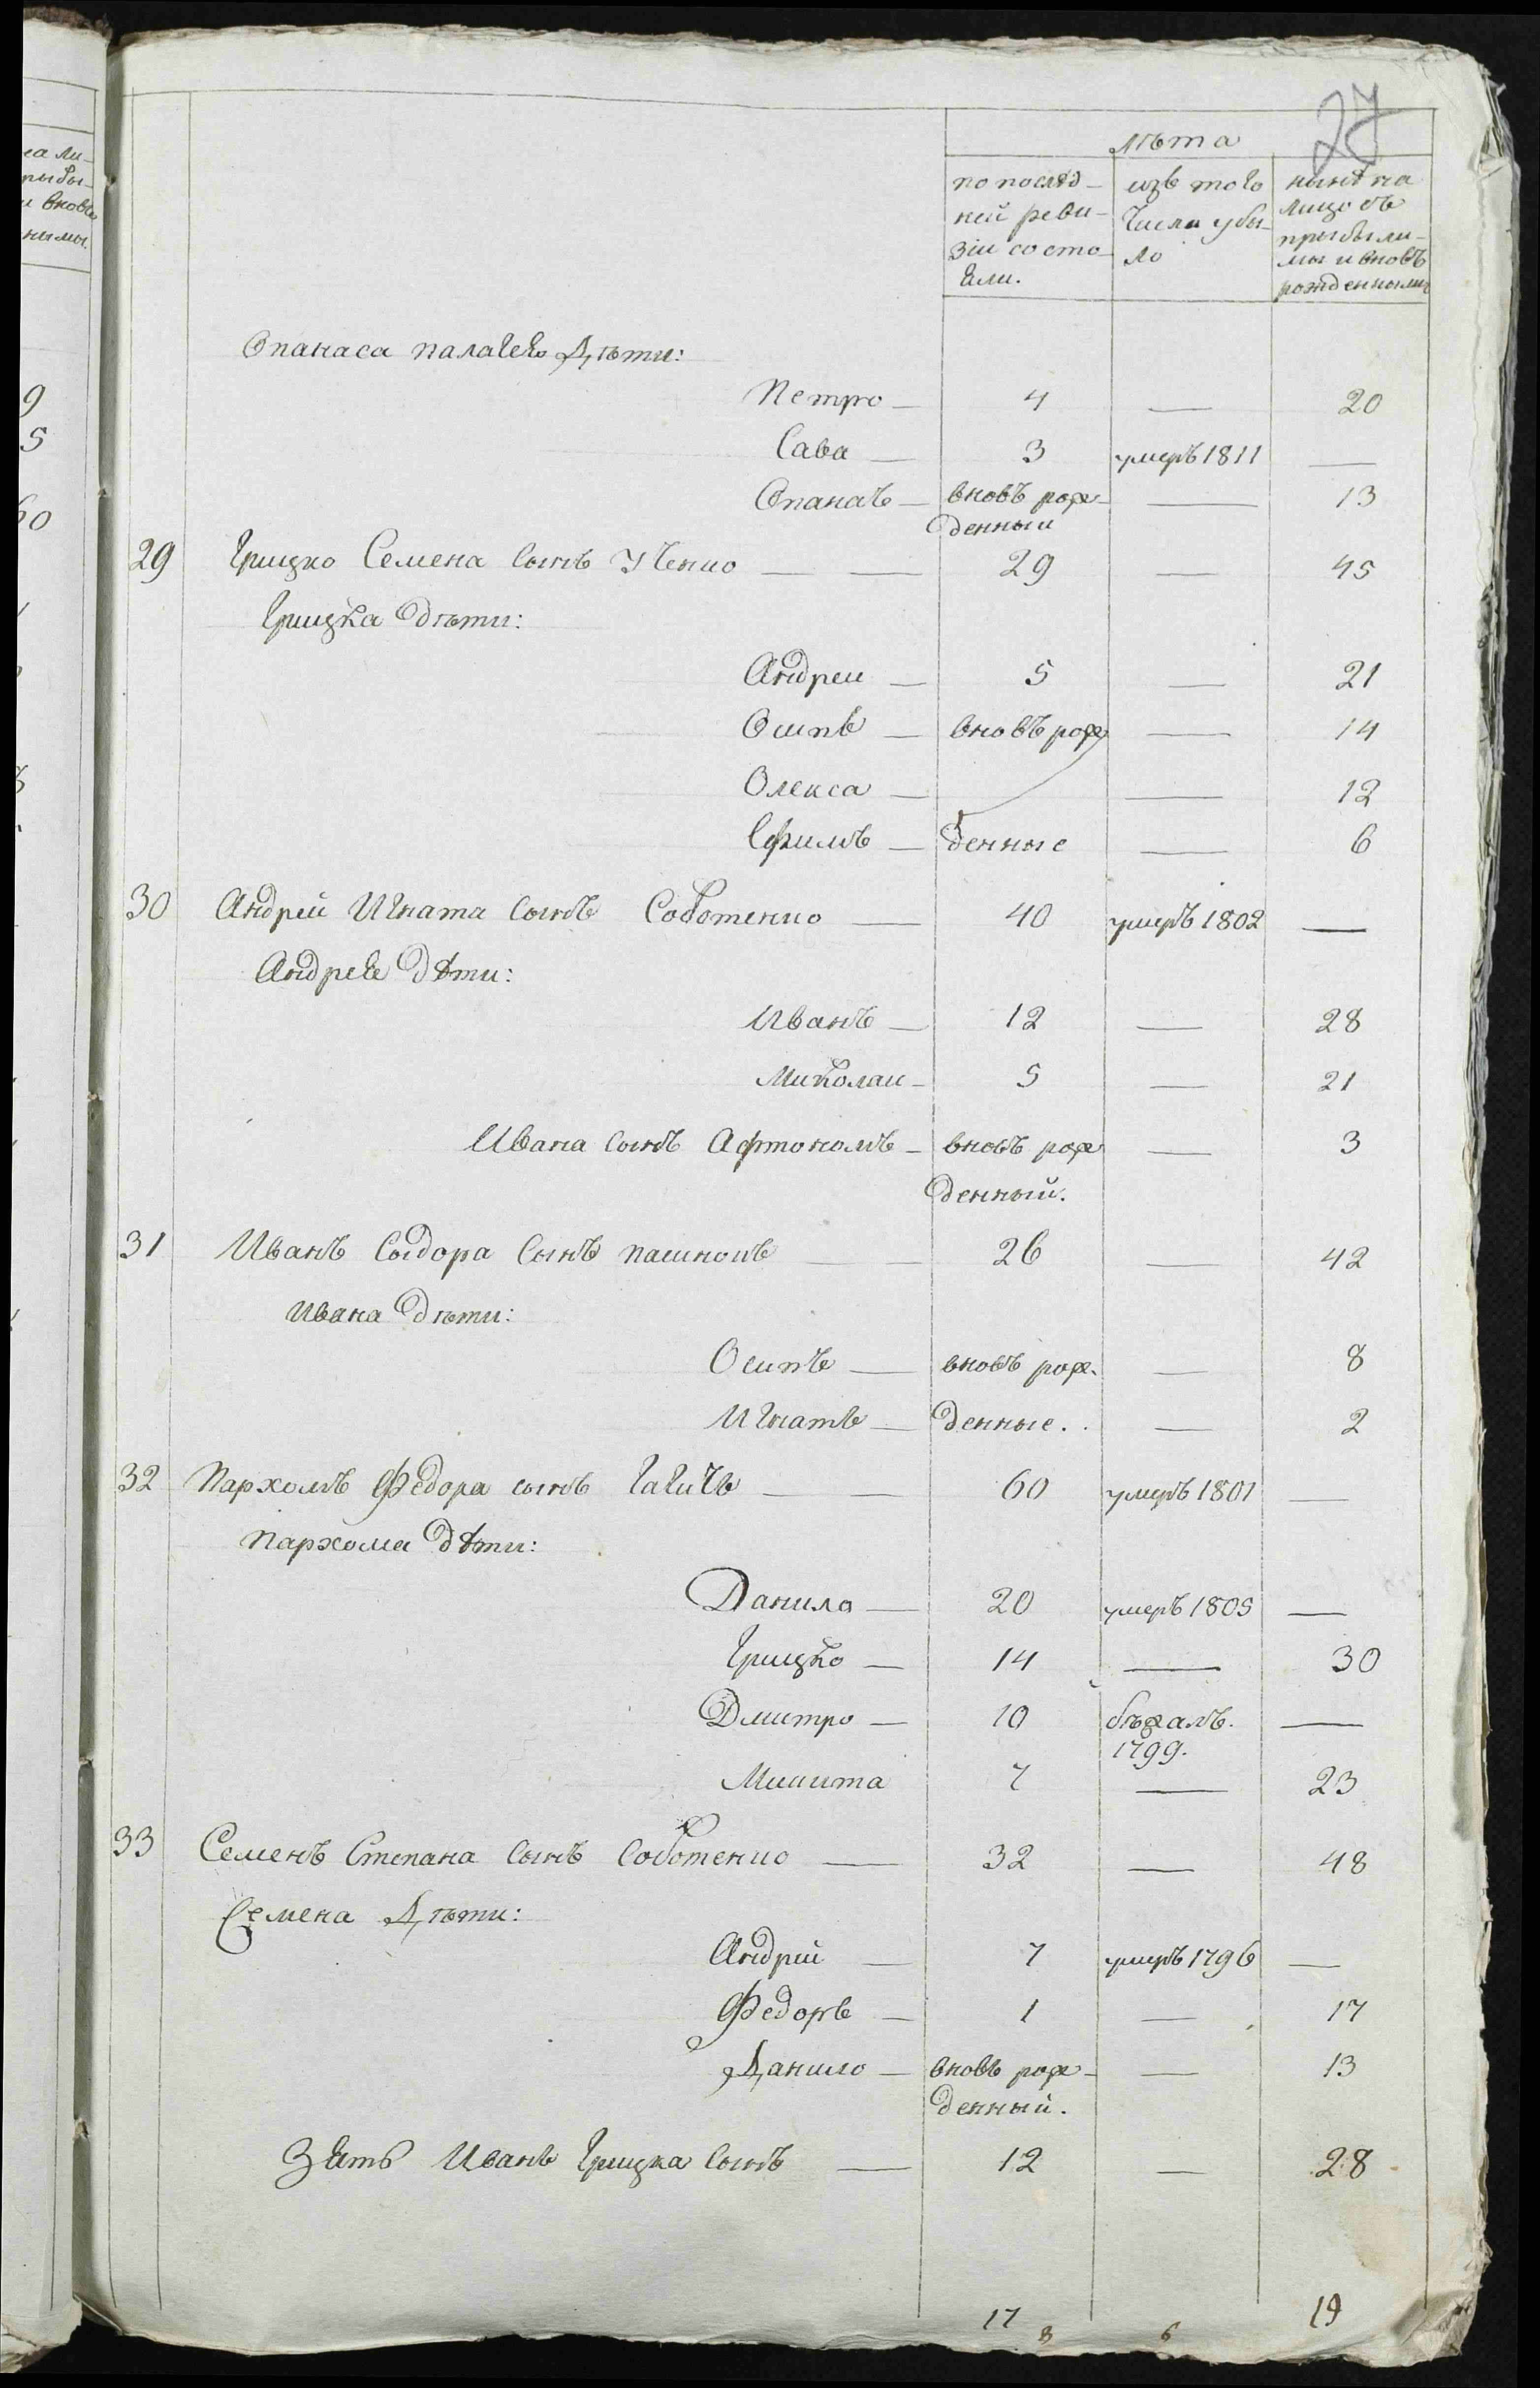 27
лѣта
по послѣд-
ней реви-
зіи состо-
яли.
изъ того
числа убы-
ло
нынѣ на
лицо съ
прибыли-
мы и вновь
рожденными
Опанаса палагею Дѣти:
Петро — 4 — 20
Сава — 3 умеръ 1811 —
Опанасъ — вновъ рож- — 13
денный
29 Грицко Семена сынъ — 29 — 45
Грицка дѣти:
Андреи — 5 — 21
Осипъ — вновъ рож — 14
Олекса — — 12
Ефимъ — денные — 6
30 Андрей Игната сынъ Соботенко — 40 умеръ 1802 —
Андрея дѣти:
Иванъ — 12 — 28
Миколаи — 5 — 21
Ивана сынъ Афтономъ — вновъ рож — 3
денный.
31 Иванъ Сыдора Сынъ — 26 — 42
Ивана дѣти:
Осипъ — вновъ рож. — 8
Игнатъ — денные. — 2
32 Пархомъ Федора сынъ — 60 умеръ 1801 —
Пархома дѣти:
Данила — 20 умеръ 1805 —
Грицко — 14 — 30
Дмитро — 10 бѣжалъ. —
1799.
Микита 7 — 23
33 Семенъ Степана сынъ Соботенко — 32 — 48
Семена Дѣти:
Андрій — 7 умеръ 1796 —
Федоръ — 1 — 17
Данило — вновь рож- — 13
денный.
Зять Иванъ Грицка сынъ — 12 — 28
17 8 6 19